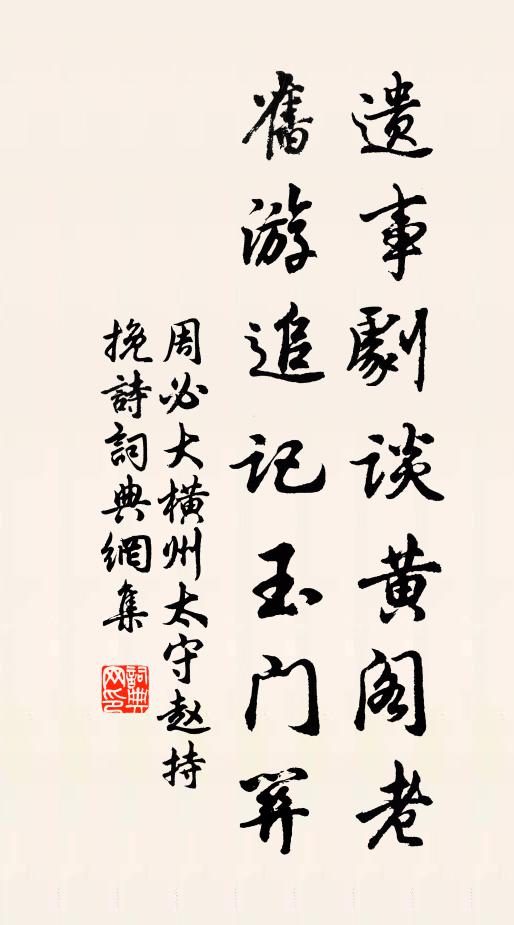 遗事劇谈黄阁老
舊游追记玉门关
周必大横州太守赵持
挽詩詞典網集
詞典网印